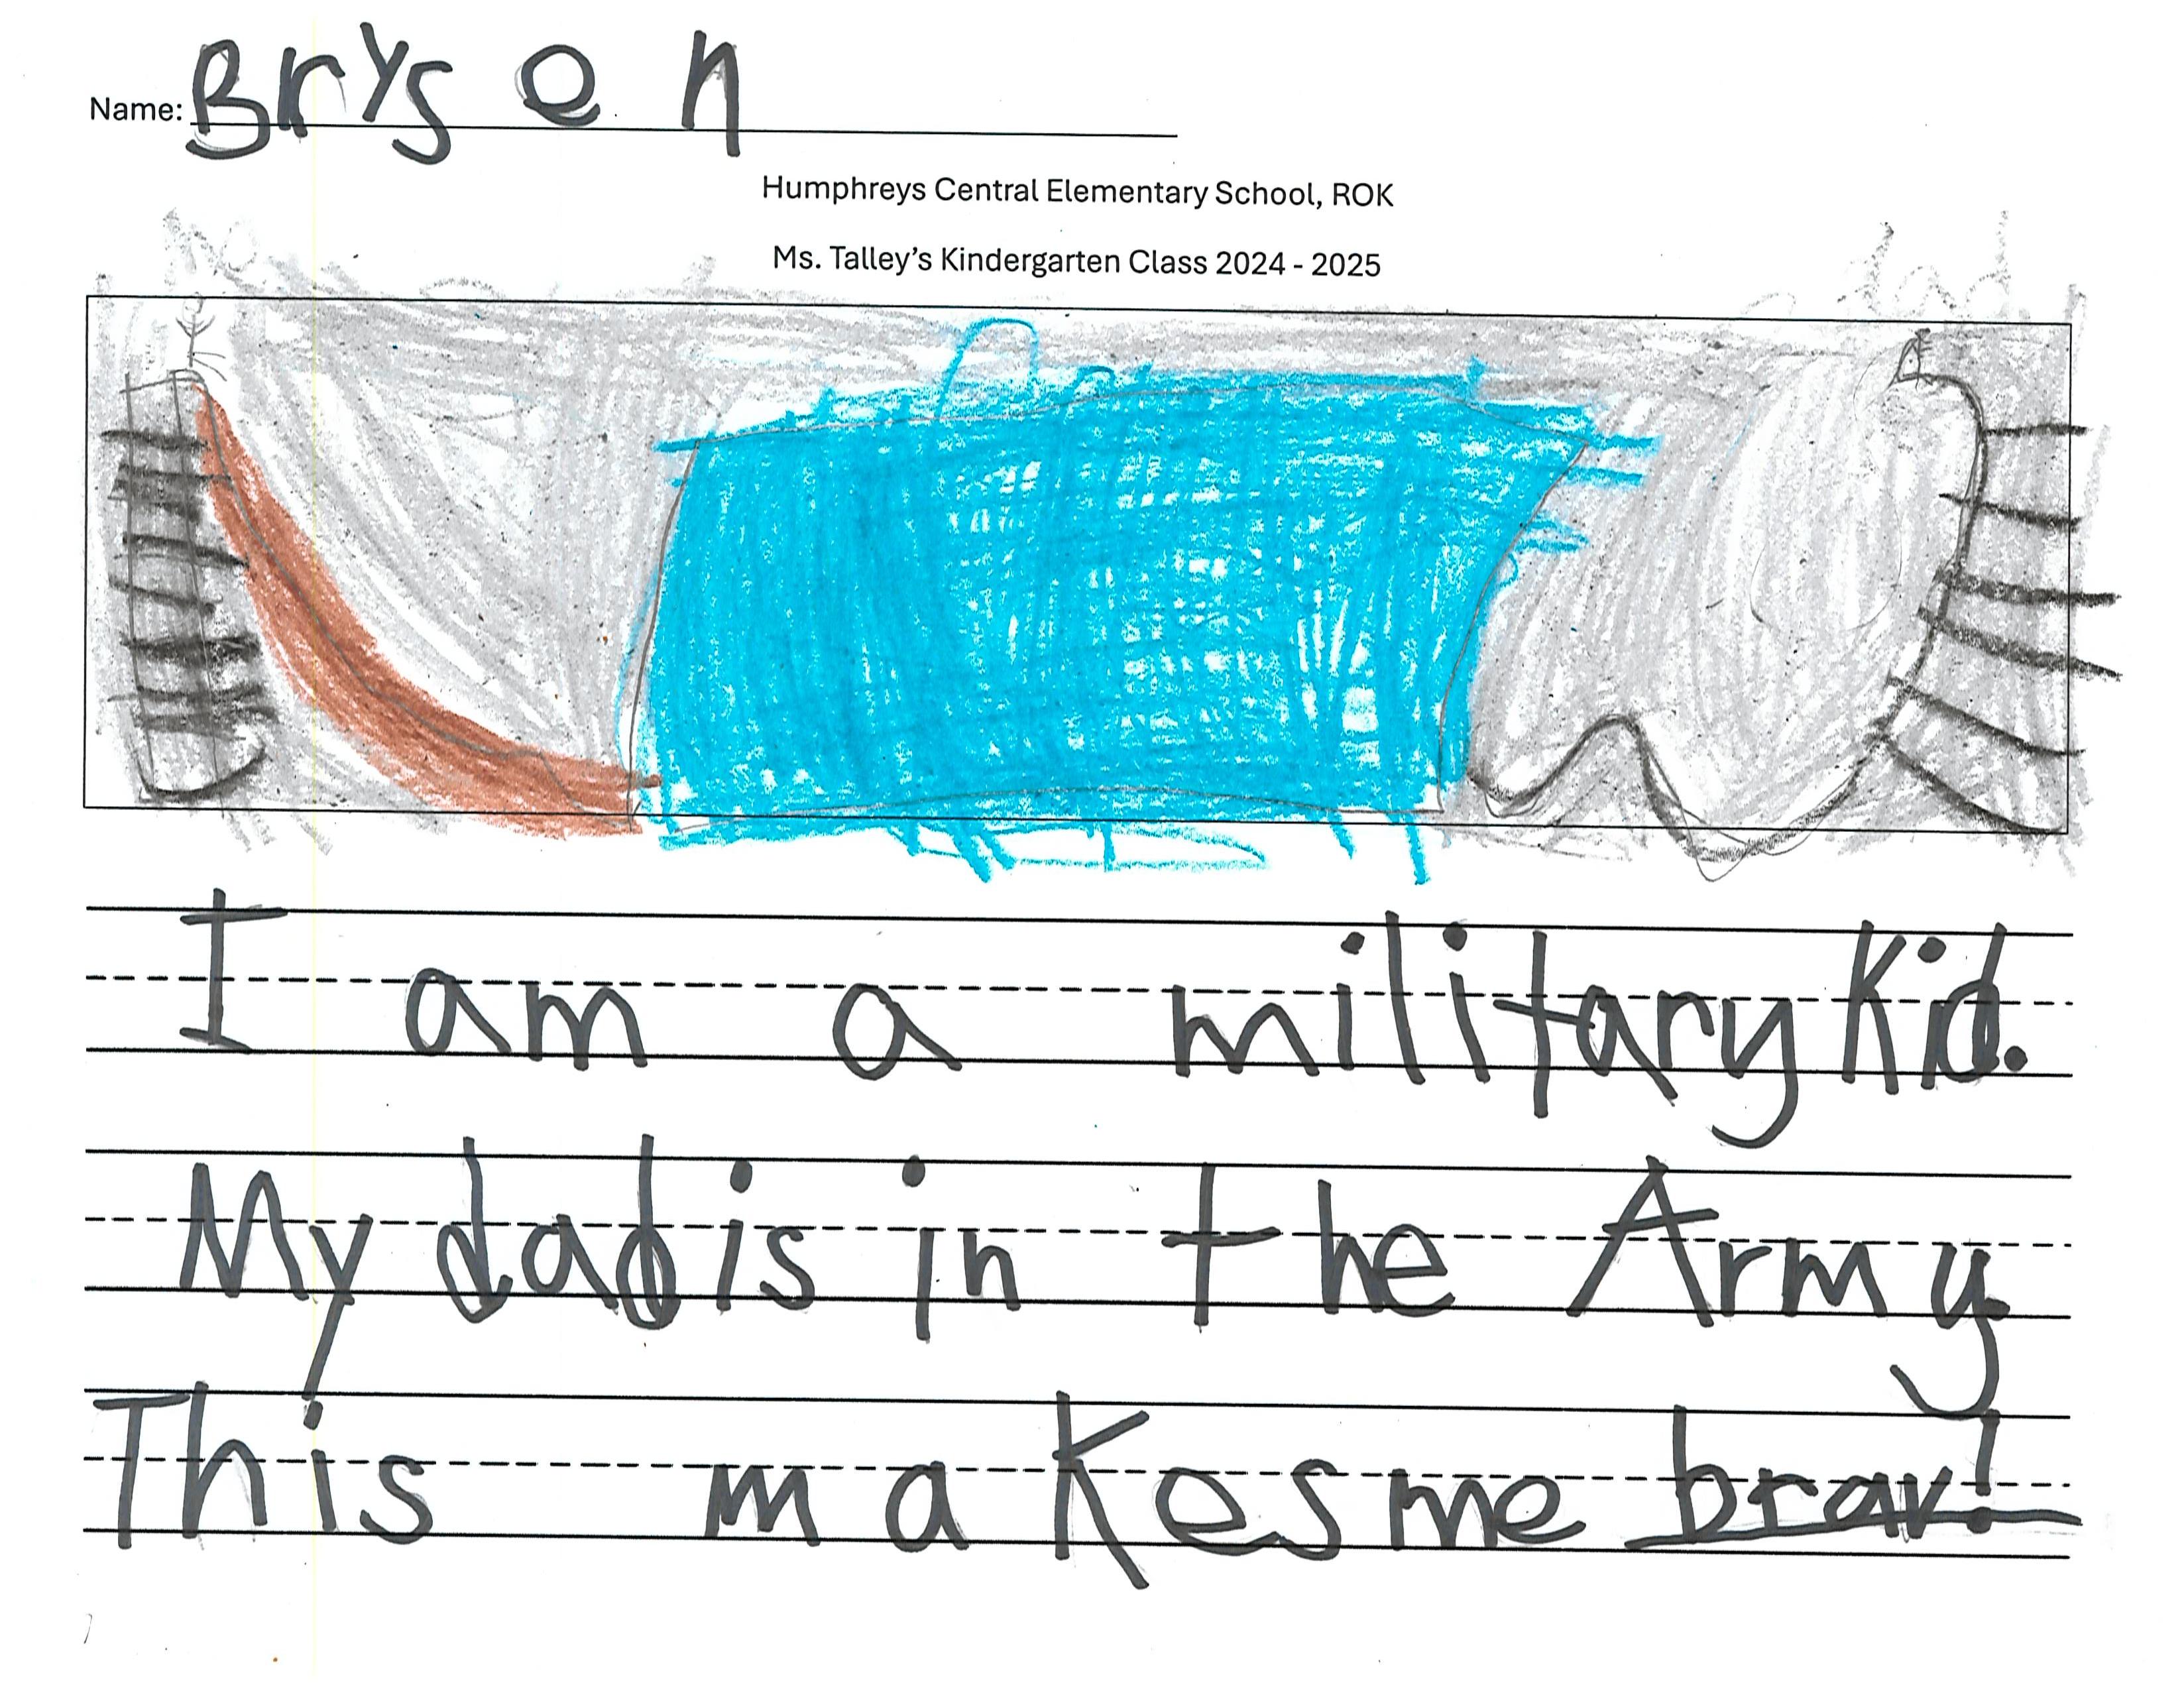 Name: Bryson
Humphreys Central Elementary School, ROK
Ms. Talley's Kindergarten Class 2024 - 2025
me dad
I am a military Kid.
My dad is in the Army.
This makes me brav!